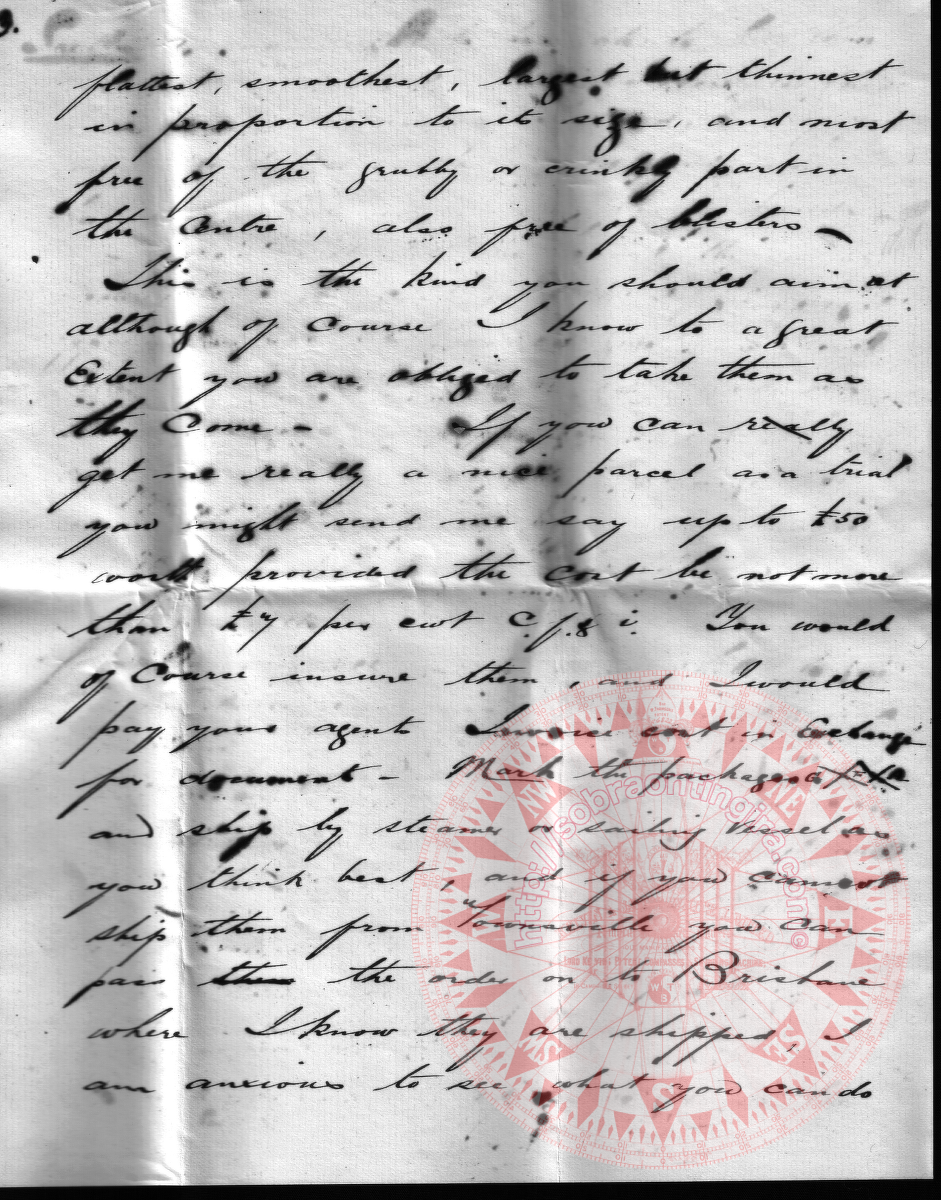 3.
flattest, smoothest, largest but thinnest
in proportion to its size, and most
free of the grubby or crinkly part in
the Centre, also free of blisters —
This is the kind you should aim at
although of Course I know to a great
Extent you are obliged to take them as
they Come - If you can really
get me really a nice parcel as a trial
you might send me say up to £50
worth provided the cost be not more
than £7 per cwt C.f. & i. You would
of Course insure them, and I would
pay your agents Invoice cost in Exchange
for document - Mark the packages
and ship by steamer or sailing vessel as
you think best, and if you cannot
ship them from Townsville you can
pass them the order on to Brisbane
where I know they are shipped, I
am anxious to see what you can do
http://sobraontingira.com